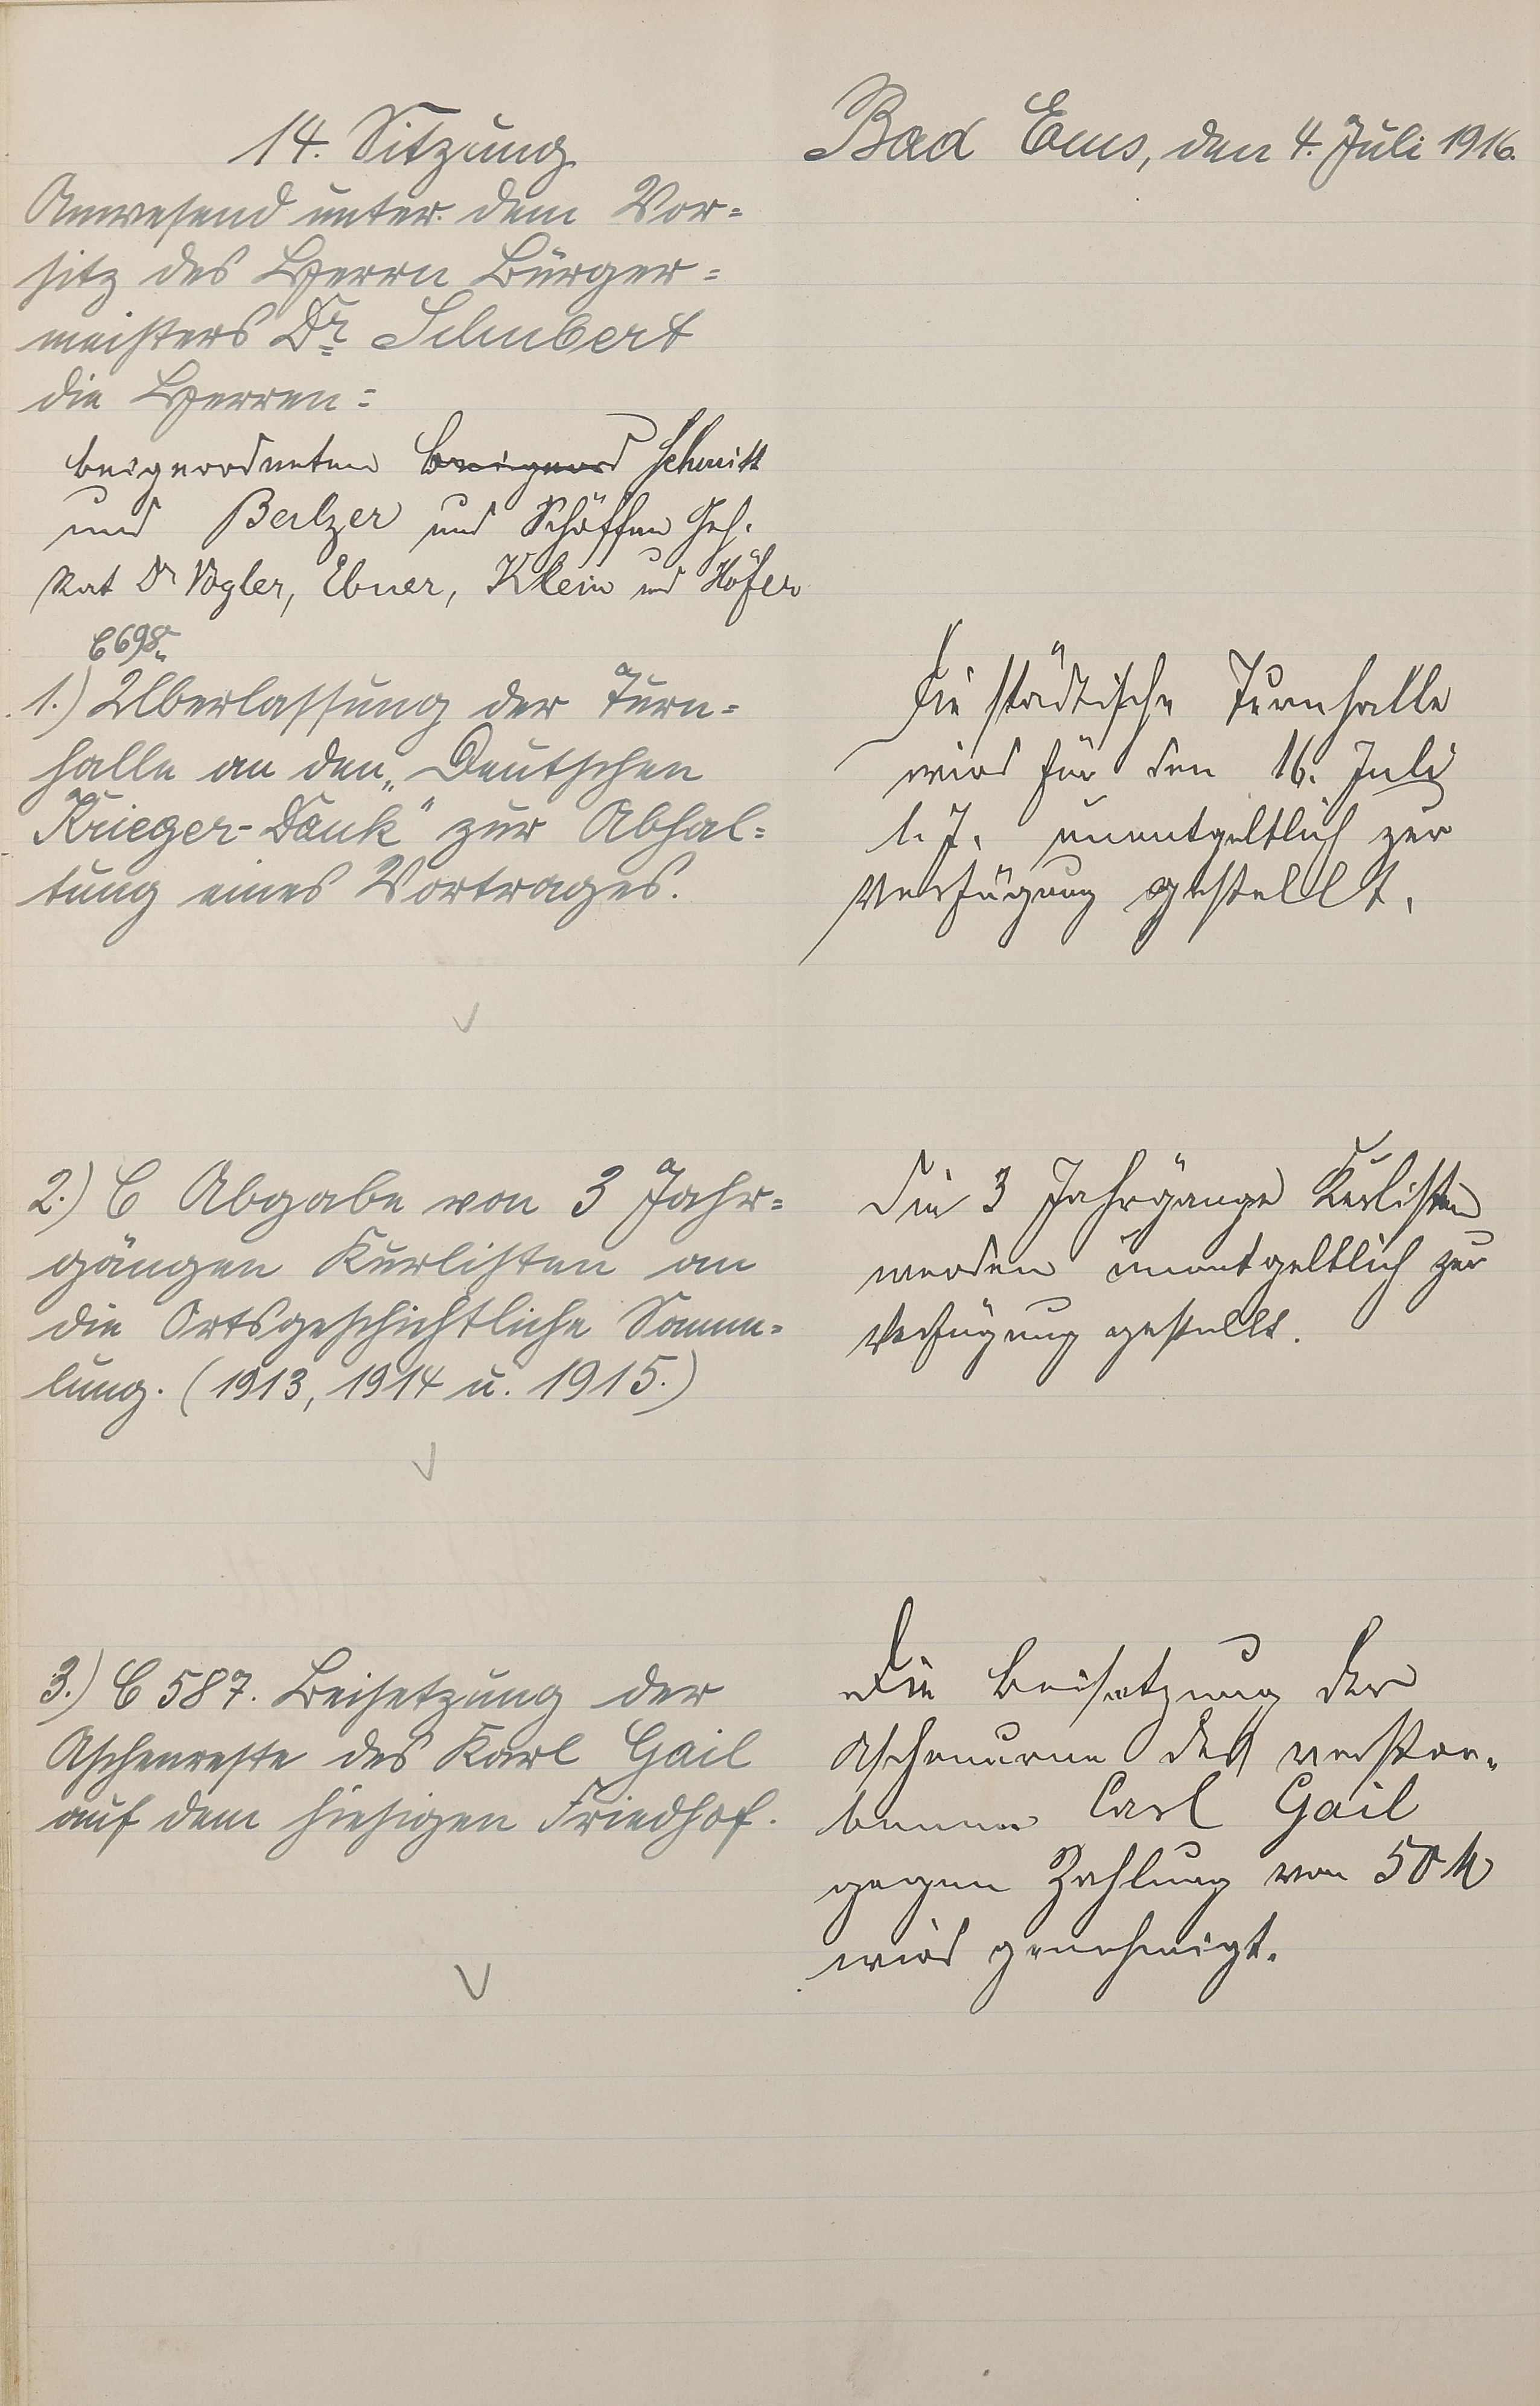 14. Sitzung.
Bad Ems, den 4. Juli 1916.
Anwesend unter dem Vor=
sitz des Herrn Bürger=
meisters Dr. Schubert
die Herren:
beigeordneten beigeord Schmitt
und Balzer und Schöffen Geh.
Rat Dr Vogler, Ebner, Klein und Höfer
C 698.
1.) Überlassung der Turn=
halle an den „Deutschen
Krieger-Dank“ zur Abhal=
tung eines Vortrages.
Die städtische Turnhalle
wird für den 16. Juli
l. J. unentgeltlich zur
Verfügung gestellt.
2.) C Abgabe von 3 Jahr=
gängen Kurlisten an
die Ortsgeschichtliche Samm=
lung. (1913, 1914 u. 1915.)
Die 3 Jahrgänge Kurlisten
werden unentgeltlich zur
Verfügung gestellt.
3.) C 587. Beisetzung der
Aschenreste des Karl Gail
auf dem hiesigen Friedhof.
Die Beisetzung der
Aschenurne des verstor=
benen Carl Gail
gegen Zahlung von 50 M
wird genehmigt.